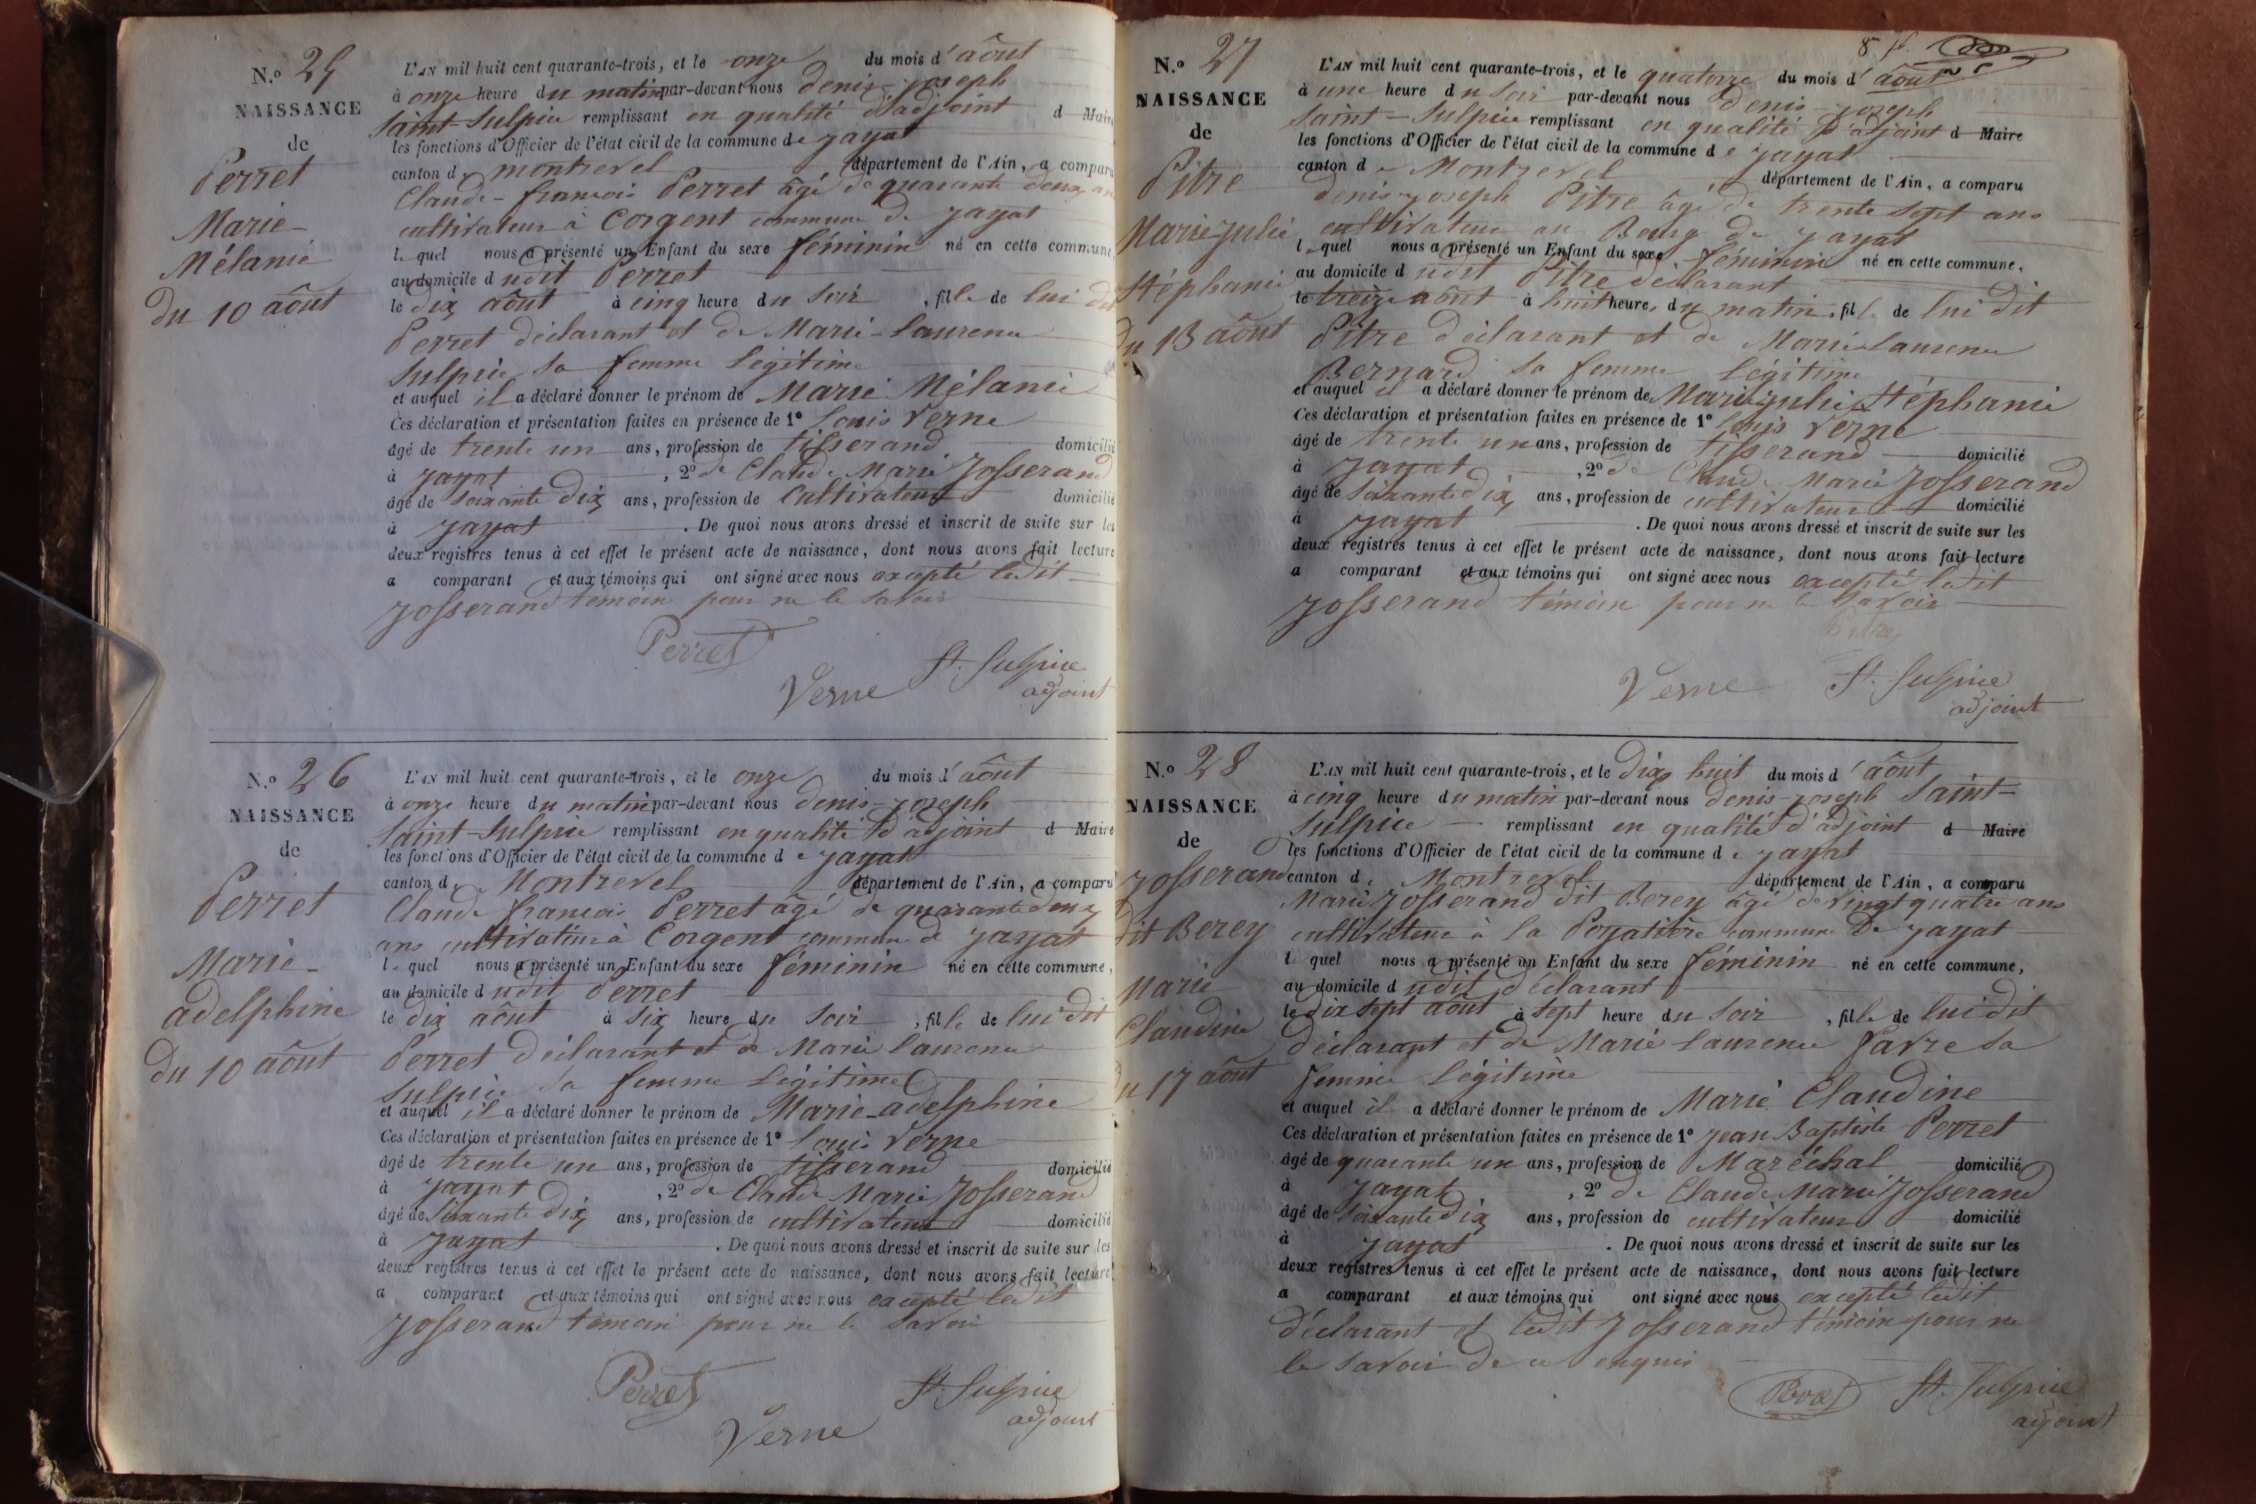 N.º 25
NAISSANCE
de
Perret
Marie
Mélanie
du 10 août
L'AN mil huit cent quarante-trois, et le onze du mois d'août
à onze heure du matin par-devant nous denis-joseph
Saint-Sulpice remplissant en qualité d'adjoint d Maire
les fonctions d'Officier de l'état civil de la commune de jayat
canton de montrevel département de l'Ain, a comparu
Claude-françois Perret âgé de quarante deux ans
cultivateur à Corgent commune de jayat
lequel nous a présenté un Enfant du sexe féminin né en cette commune,
au domicile dudit Perret
le dix août à cinq heure du soir, fille de lui dit
Perret déclarant et de Marie-laurence
Sulpice sa femme légitime
et auquel il a déclaré donner le prénom de Marie Mélanie
Ces déclaration et présentation faites en présence de 1º louis Verne
âgé de trente un ans, profession de tisserand domicilié
à jayat, 2º de Claude Marie Josserand
âgé de soixante dix ans, profession de Cultivateur domicilié
à jayat. De quoi nous avons dressé et inscrit de suite sur les
deux registres tenus à cet effet le présent acte de naissance, dont nous avons fait lecture
a comparant et aux témoins qui ont signé avec nous excepté ledit
Josserand témoin pour ne le savoir
Perret
Verne St. Sulpice
adjoint
N.º 26
NAISSANCE
de
Perret
Marie-
adelphine
du 10 août
L'AN mil huit cent quarante-trois, et le onze du mois d'août
à onze heure du matin par-devant nous denis-joseph
Saint-Sulpice remplissant en qualité d'adjoint d Maire
les fonctions d'Officier de l'état civil de la commune de jayat
canton de Montrevel département de l'Ain, a comparu
Claude françois Perret âgé de quarante deux
ans cultivateur à Corgent commune de jayat
lequel nous a présenté un Enfant du sexe féminin né en cette commune,
au domicile dudit Perret
le dix août à six heure du soir, fille de lui dit
Perret déclarant et de Marie laurence
Sulpice sa femme légitime
et auquel il a déclaré donner le prénom de Marie-adelphine
Ces déclaration et présentation faites en présence de 1º louis Verne
âgé de trente un ans, profession de tisserand domicilié
à jayat, 2º de Claude Marie Josserand
âgé de soixante dix ans, profession de cultivateur domicilié
à jayat. De quoi nous avons dressé et inscrit de suite sur les
deux registres tenus à cet effet le présent acte de naissance, dont nous avons fait lecture
a comparant et aux témoins qui ont signé avec nous excepté ledit
Josserand témoin pour ne le savoir
Perret
Verne St. Sulpice
adjoint
8
N.º 27
NAISSANCE
de
Pitre
Marie julie
Stéphanie
du 13 août
L'AN mil huit cent quarante-trois, et le quatorze du mois d'août
à une heure du soir par-devant nous denis-joseph
Saint-Sulpice remplissant en qualité d'adjoint d Maire
les fonctions d'Officier de l'état civil de la commune de jayat
canton de Montrevel département de l'Ain, a comparu
denis-joseph Pitre âgé de trente sept ans
cultivateur au Bourg de jayat
lequel nous a présenté un Enfant du sexe féminin né en cette commune,
au domicile dudit Pitre déclarant
le treize août à huit heures du matin, fille de lui dit
Pitre déclarant et de Marie laurence
Bernard sa femme légitime
et auquel il a déclaré donner le prénom de Marie julie Stéphanie
Ces déclaration et présentation faites en présence de 1º louis Verne
âgé de trente un ans, profession de tisserand domicilié
à jayat, 2º de Claude Marie Josserand
âgé de soixante dix ans, profession de cultivateur domicilié
à jayat. De quoi nous avons dressé et inscrit de suite sur les
deux registres tenus à cet effet le présent acte de naissance, dont nous avons fait lecture
a comparant et aux témoins qui ont signé avec nous excepté ledit
Josserand témoin pour ne le savoir
Pitre
Verne St. Sulpice
adjoint
N.º 28
NAISSANCE
de
Josserand
dit Berey
Marie
Claudine
du 17 août
L'AN mil huit cent quarante-trois, et le dix huit du mois d'août
à cinq heure du matin par-devant nous denis-joseph Saint-
Sulpice remplissant en qualité d'adjoint d Maire
les fonctions d'Officier de l'état civil de la commune de jayat
canton de Montrevel département de l'Ain, a comparu
Marie Josserand dit Berey âgé de vingt quatre ans
cultivateur à la Poyatière commune de jayat
lequel nous a présenté un Enfant du sexe féminin né en cette commune,
au domicile dudit déclarant
le dix sept août à sept heure du soir, fille de lui dit
déclarant et de Marie laurence favre sa
femme légitime
et auquel il a déclaré donner le prénom de Marie Claudine
Ces déclaration et présentation faites en présence de 1º jean Baptiste Perret
âgé de quarante un ans, profession de Maréchal domicilié
à jayat, 2º de Claude Marie Josserand
âgé de soixante dix ans, profession de cultivateur domicilié
à jayat. De quoi nous avons dressé et inscrit de suite sur les
deux registres tenus à cet effet le présent acte de naissance, dont nous avons fait lecture
a comparant et aux témoins qui ont signé avec nous excepté ledit
déclarant et ledit Josserand témoin pour ne
le savoir de ce enquis
St. Sulpice
adjoint